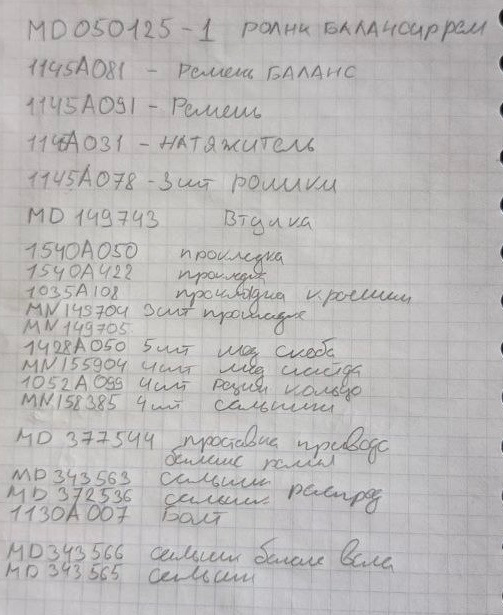 MD050125-1 ролик БАЛАНСИР рем
1145A081 - Ремень БАЛАНС
1145A091 - Ремень
1145A031 - НАТЯЖИТЕЛЬ
1145A078 - 3шт РОЛИКИ
MD 149743 Втулка
1540A050 прокладка
1540A422 прокладк
1035A108 прокладка крышки
MN149704 3шт прокладк
MN149705
1428A050 5шт мед скоба
MN155904 4шт мед шайба
1052A099 4шт кольцо
MN158385 4шт сальники
MD 377544 проставка привода
баланс
MD343563 сальник
MD372536 сальник распред
1130A007 Болт
MD343566 сальник баланс вала
MD343565 сальник